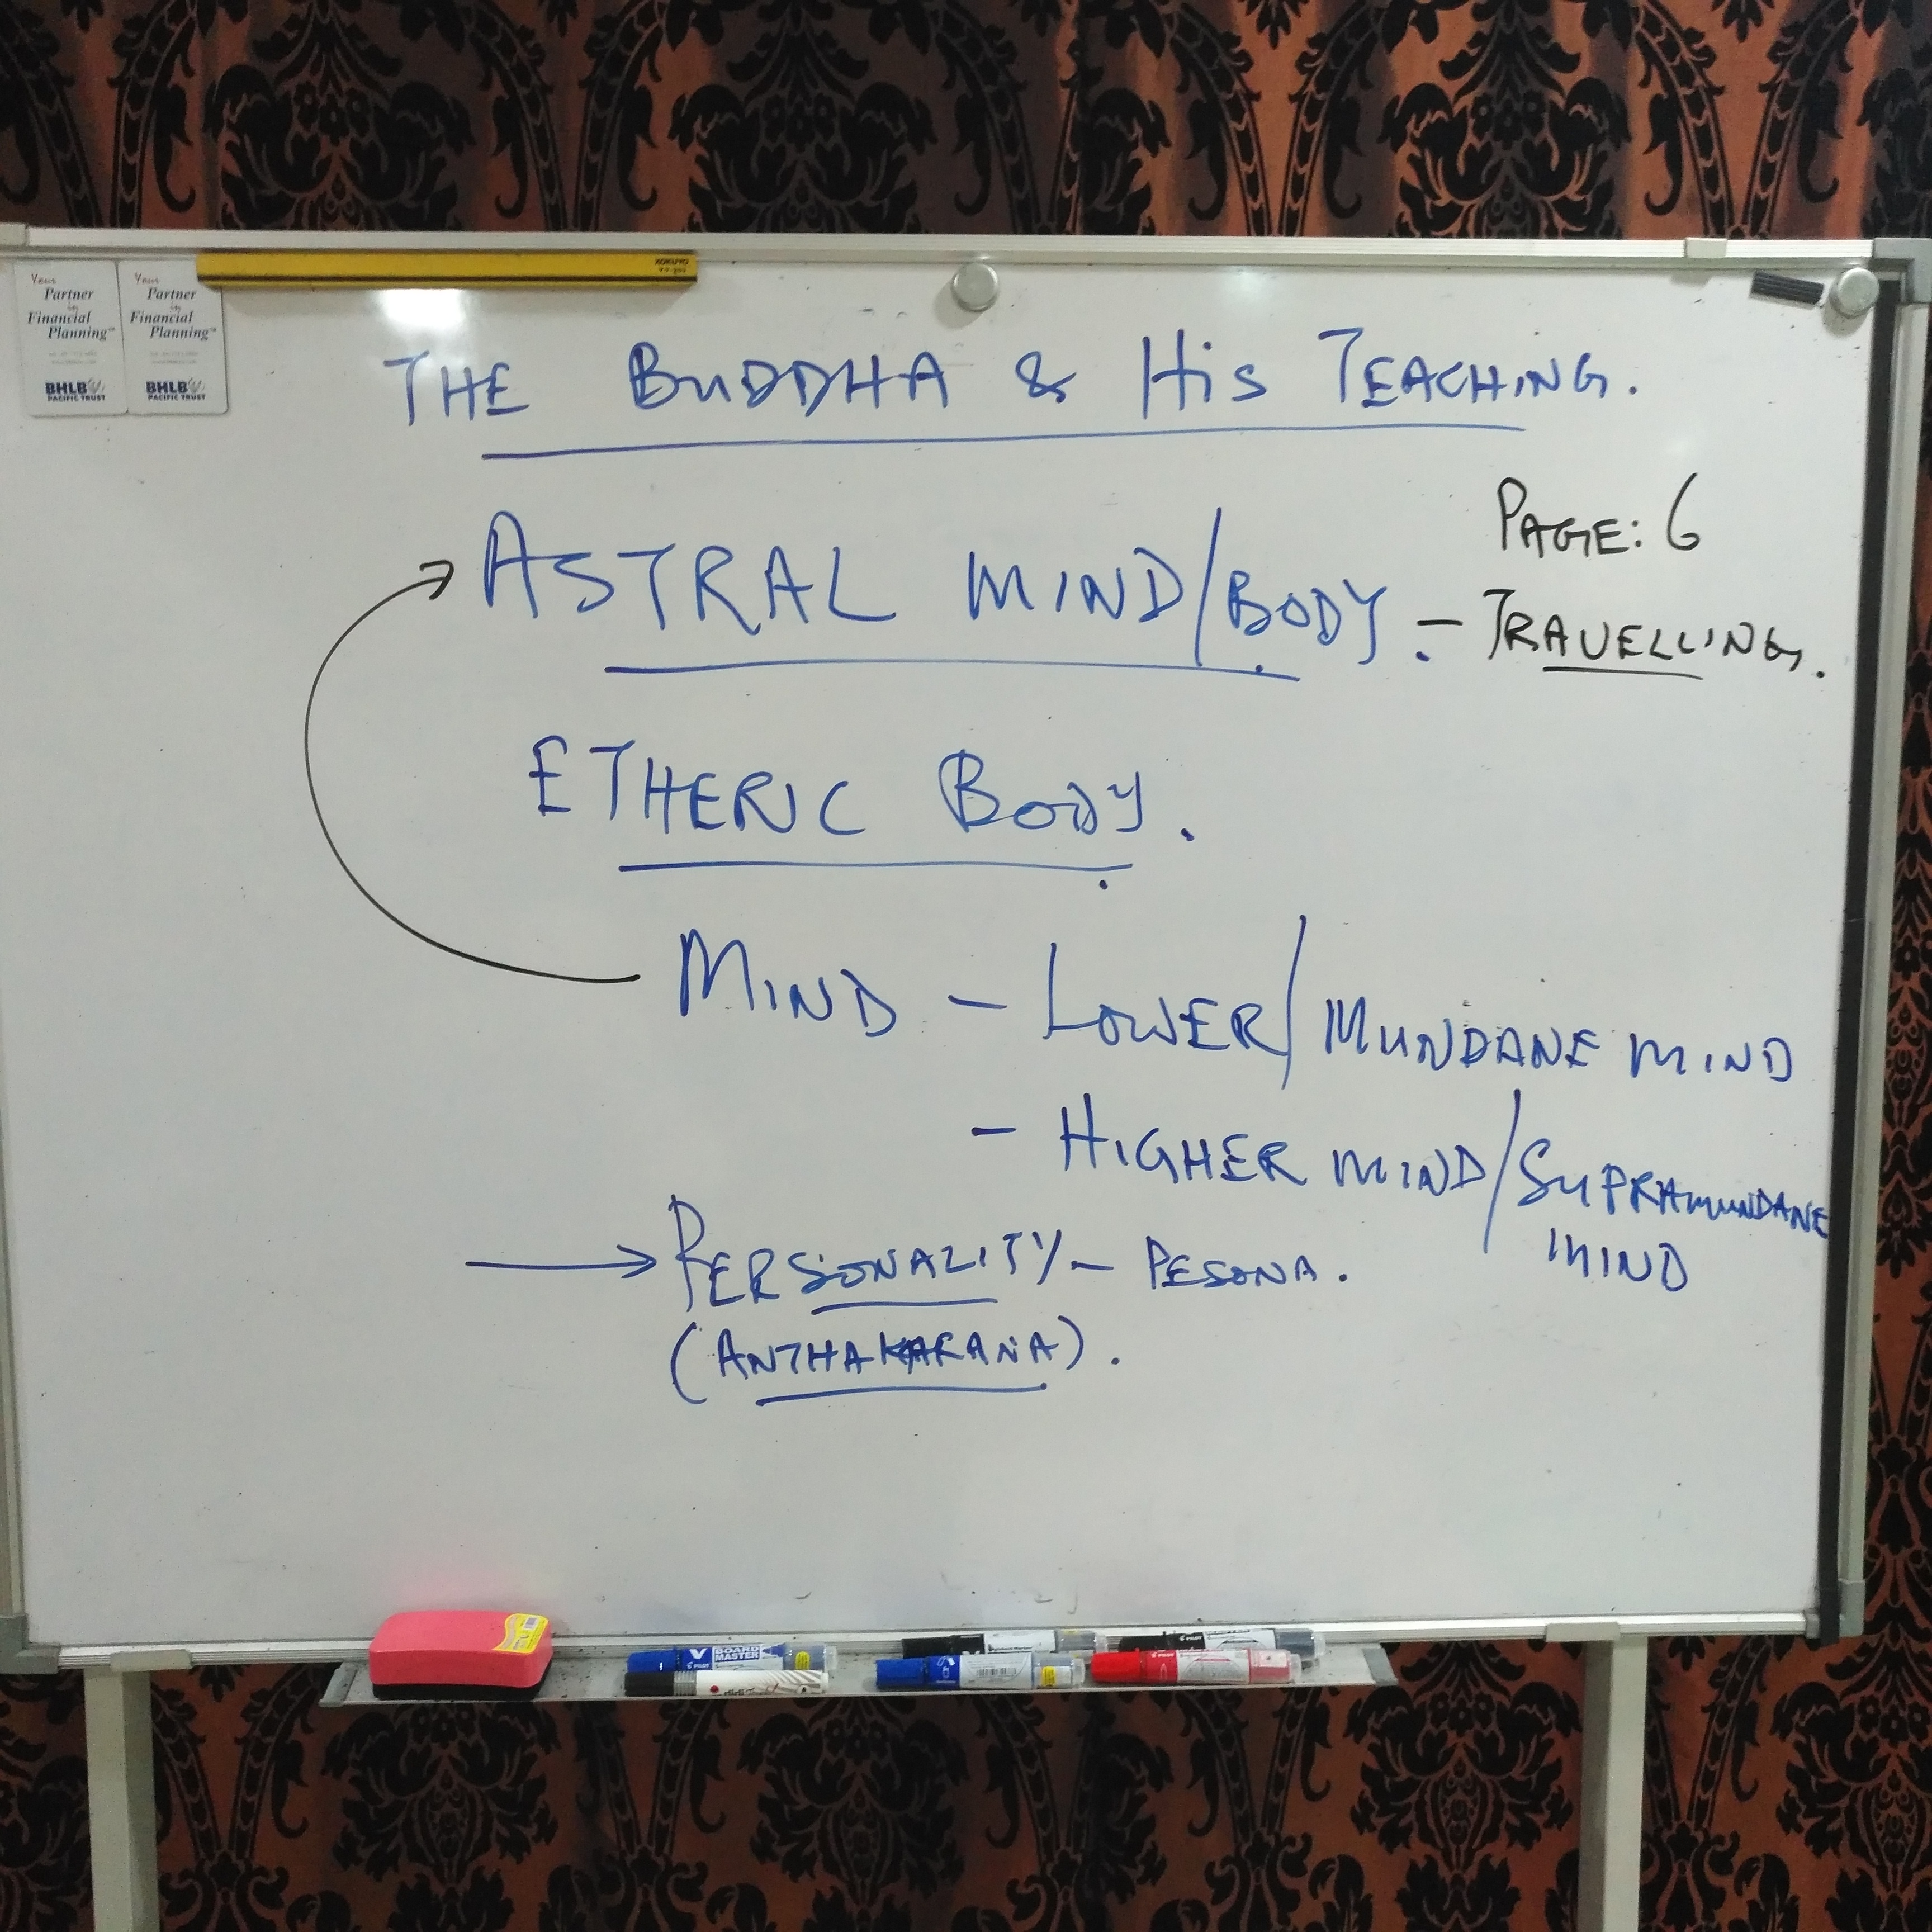 Your
Partner
in
Financial
Planning™
BHLB
PACIFIC TRUST
Your
Partner
in
Financial
Planning™
BHLB
PACIFIC TRUST
KOKUYO
THE BUDDHA & HIS TEACHING.
PAGE: 6
ASTRAL MIND/BODY. - TRAVELLING.
ETHERIC BODY.
MIND - LOWER/MUNDANE MIND
- HIGHER MIND/SUPRAMUNDANE
MIND
→ PERSONALITY - PESONA.
(ANTHAKARANA).
V BOARD
MASTER
PILOT